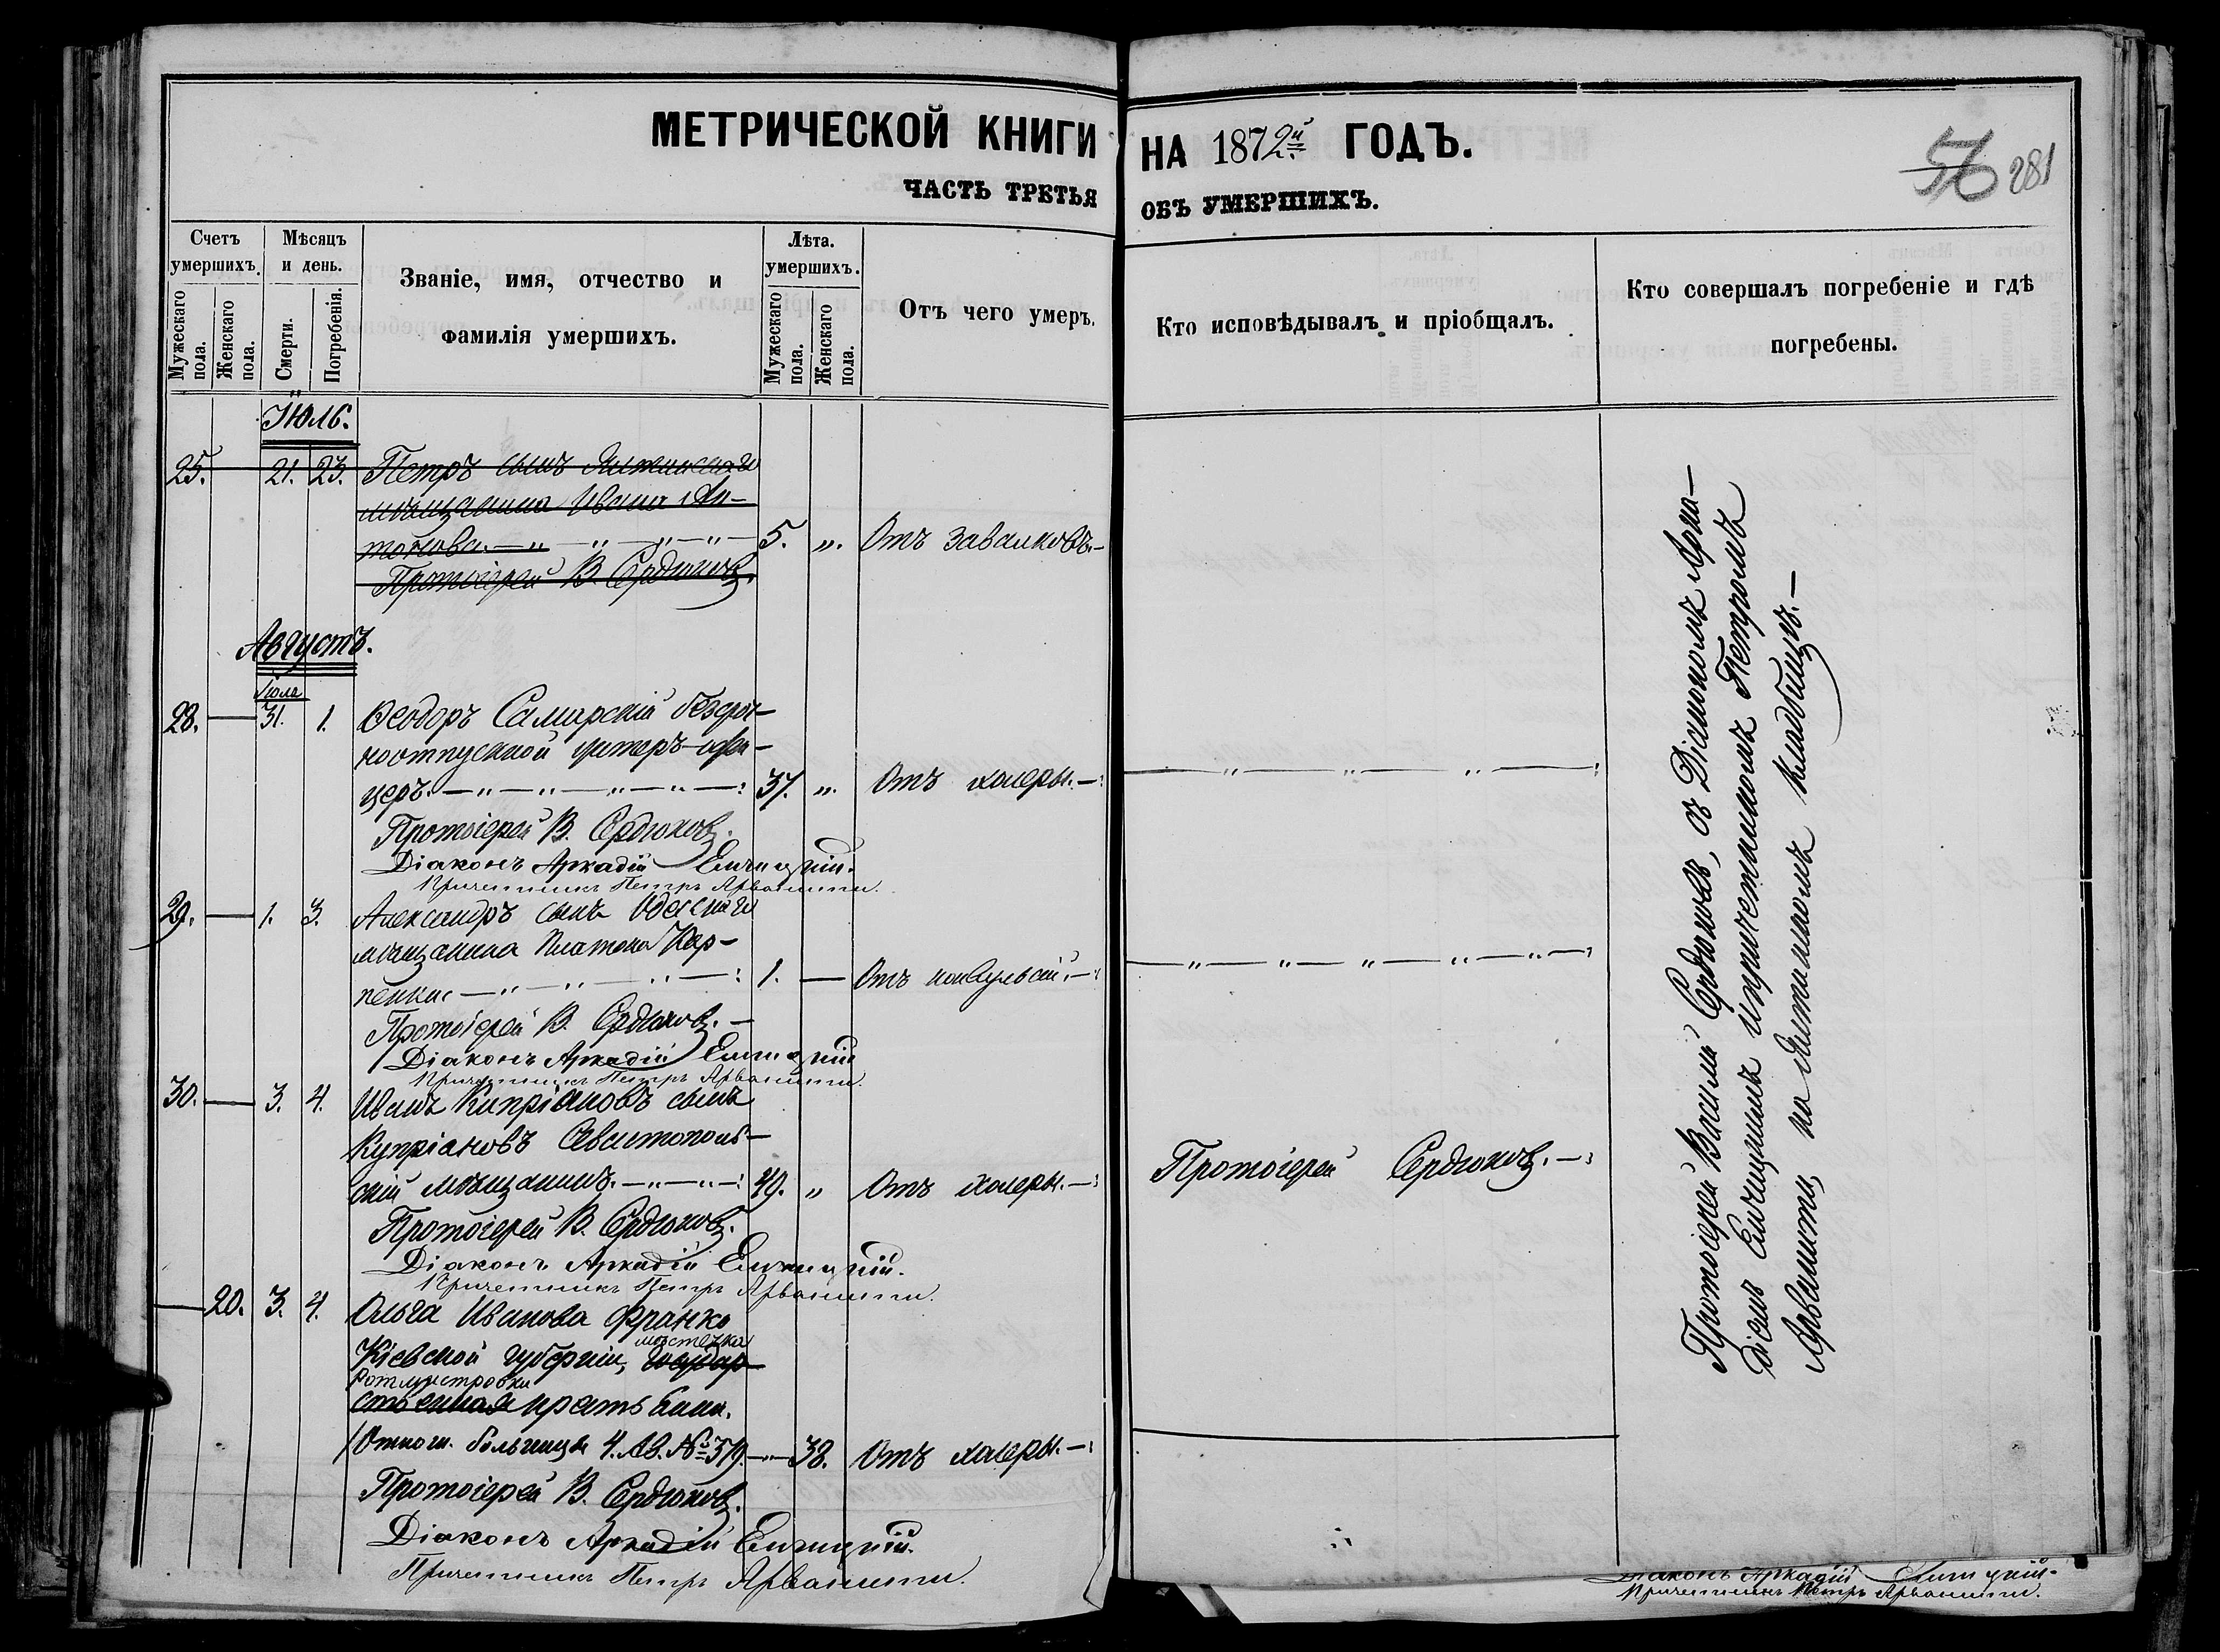 МЕТРИЧЕСКОЙ КНИГИ НА 1872й ГОДЪ.
56 281
ЧАСТЬ ТРЕТЬЯ ОБЪ УМЕРШИХЪ.
Счетъ умершихъ.
Мужескаго пола.
Женскаго пола.
Мѣсяцъ и день.
Смерти.
Погребенія.
Званіе, имя, отчество и
фамилія умершихъ.
Лѣта.
умершихъ.
Мужескаго пола.
Женскаго пола.
Отъ чего умеръ.
Кто исповѣдывалъ и пріобщалъ.
Кто совершалъ погребеніе и гдѣ
погребены.
Іюль.
25. 21. 23. Петръ сынъ
мѣщанина Ивана Ан-
тонова. 5. „ Отъ завалковъ.
Протоіерей В. Сердюковъ.
Августъ.
Іюля
28. 31. 1. Ѳеодоръ Самарскій безсроч-
ноотпускной унтеръ-офи-
церъ. 37. „ Отъ холеры.
Протоіерей В. Сердюковъ.
Діаконъ Аркадій
Причетникъ Петръ Арванити.
29. 1. 3. Александръ сынъ Одесскаго
мѣщанина Платона Кар-
пенки 1. — Отъ конвульсій.
Протоіерей В. Сердюковъ.
Діаконъ Аркадій
Причетникъ Петръ Арванити.
30. 3. 4. Иванъ Кипріановъ сынъ
Купріановъ Севастополь-
скій мѣщанинъ. 49. „ Отъ холеры. Протоіерей Сердюковъ.
Протоіерей В. Сердюковъ.
Діаконъ Аркадій
Причетникъ Петръ Арванити.
20. 3. 4. Ольга Иванова Франко
мѣстечка
Кіевской губерніи, государ-
Ротмистровки
ственная крестьянка.
больницы 4. Ав. № 379. 38. Отъ холеры.
Протоіерей В. Сердюковъ.
Діаконъ Аркадій
Причетникъ Петръ Арванити.
Протоіерей Василій Сердюковъ, съ Діакономъ Арка-
діемъ и причетникомъ Петромъ
Арванити, на кладбищѣ.
Діаконъ Аркадій
Причетникъ Петръ Арванити.